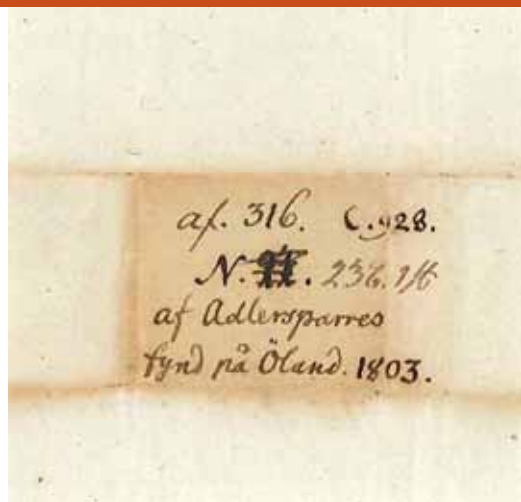 af. 316. C.928.
N. 236. 1ſt
af Adlersparres
fynd på Öland. 1803.